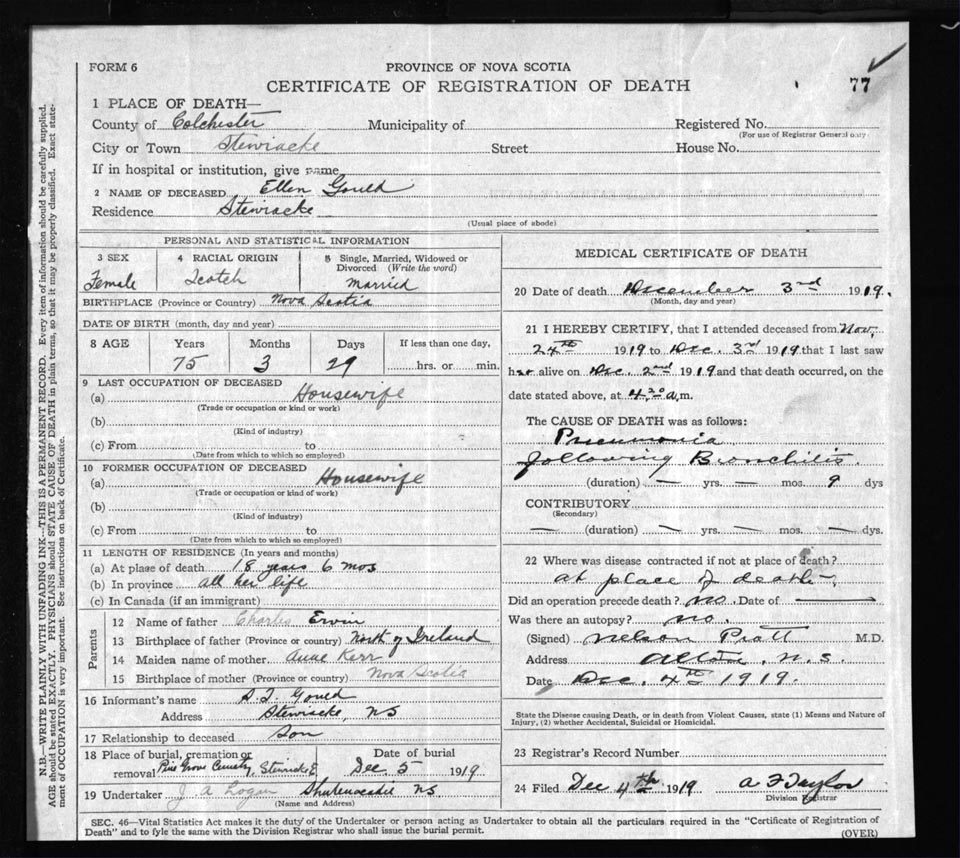 FORM 6
PROVINCE OF NOVA SCOTIA
CERTIFICATE OF REGISTRATION OF DEATH
77
1 PLACE OF DEATH—
County of Colchester Municipality of Registered No.
(For use of Registrar General only)
City or Town Stewiacke Street House No.
If in hospital or institution, give name
2 NAME OF DECEASED Ellen Gould
Residence Stewiacke
(Usual place of abode)
PERSONAL AND STATISTICAL INFORMATION
3 SEX 4 RACIAL ORIGIN 5 Single, Married, Widowed or Divorced (Write the word)
Female Scotch Married
BIRTHPLACE (Province or Country) Nova Scotia
DATE OF BIRTH (month, day and year)
8 AGE Years Months Days If less than one day,
75 3 29 hrs. or min.
9 LAST OCCUPATION OF DECEASED
(a) Housewife
(Trade or occupation or kind or work)
(b)
(Kind of industry)
(c) From to
(Date from which to which so employed)
10 FORMER OCCUPATION OF DECEASED
(a) Housewife
(Trade or occupation or kind of work)
(b)
(Kind of industry)
(c) From to
(Date from which to which so employed)
11 LENGTH OF RESIDENCE (In years and months)
(a) At place of death 18 years 6 mos
(b) In province all her life
(c) In Canada (if an immigrant)
Parents
12 Name of father Charles Ervin
13 Birthplace of father (Province or country) North of Ireland
14 Maiden name of mother Anne Kerr
15 Birthplace of mother (Province or country) Nova Scotia
16 Informant's name Gould
Address Stewiacke, NS
17 Relationship to deceased Son
18 Place of burial, cremation or removal Pine Grove Cemetry, Stewiacke
Date of burial
Dec. 5 1919
19 Undertaker J A Logan Shubenacadie NS
(Name and Address)
MEDICAL CERTIFICATE OF DEATH
20 Date of death December 3rd 1919.
(Month, day and year)
21 I HEREBY CERTIFY, that I attended deceased from Nov,
24th 1919 to Dec. 3rd 1919 that I last saw
her alive on Dec. 2nd 1919 and that death occurred, on the
date stated above, at 4.20 a.m.
The CAUSE OF DEATH was as follows:
Pneumonia
following Bronchitis.
(duration) — yrs. — mos. 9 dys
CONTRIBUTORY
(Secondary)
— (duration) — yrs. — mos. — dys.
22 Where was disease contracted if not at place of death?
at place of death.
Did an operation precede death? no. Date of
Was there an autopsy? no.
(Signed) Nelson Pratt M.D.
Address N.S.
Date Dec. 4th 1919.
State the Disease causing Death, or in death from Violent Causes, state (1) Means and Nature of
Injury, (2) whether Accidental, Suicidal or Homicidal.
23 Registrar's Record Number
24 Filed Dec 4th 1919 A F Taylor
Division Registrar
SEC. 46—Vital Statistics Act makes it the duty of the Undertaker or person acting as Undertaker to obtain all the particulars required in the "Certificate of Registration of
Death" and to fyle the same with the Division Registrar who shall issue the burial permit.
(OVER)
N.B.—WRITE PLAINLY WITH UNFADING INK—THIS IS A PERMANENT RECORD. Every item of information should be carefully supplied.
AGE should be stated EXACTLY. PHYSICIANS should STATE CAUSE OF DEATH in plain terms, so that it may be properly classified. Exact state-
ment of OCCUPATION is very important. See instructions on back of Certificate.